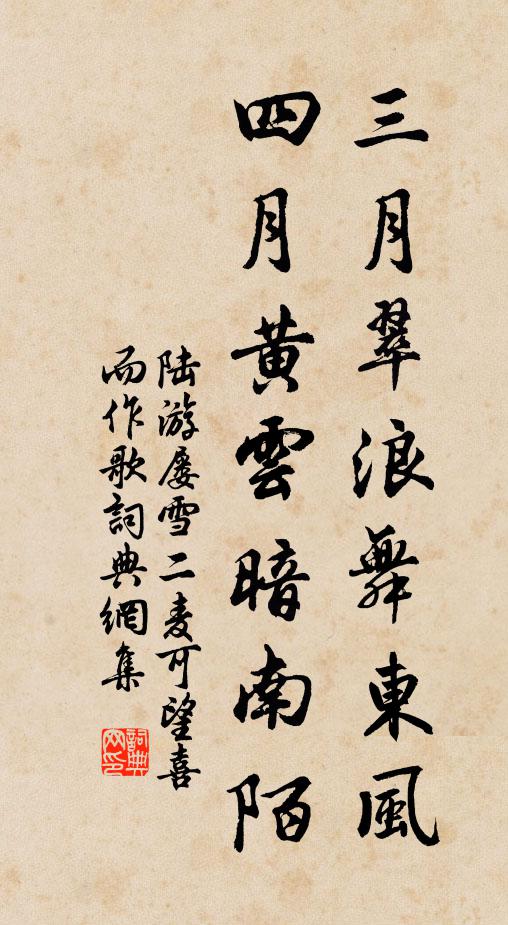 三月翠浪舞東風
四月黃雲暗南陌
陆游屡雪二麦可望喜
而作歌詞典網集
詞典
网印